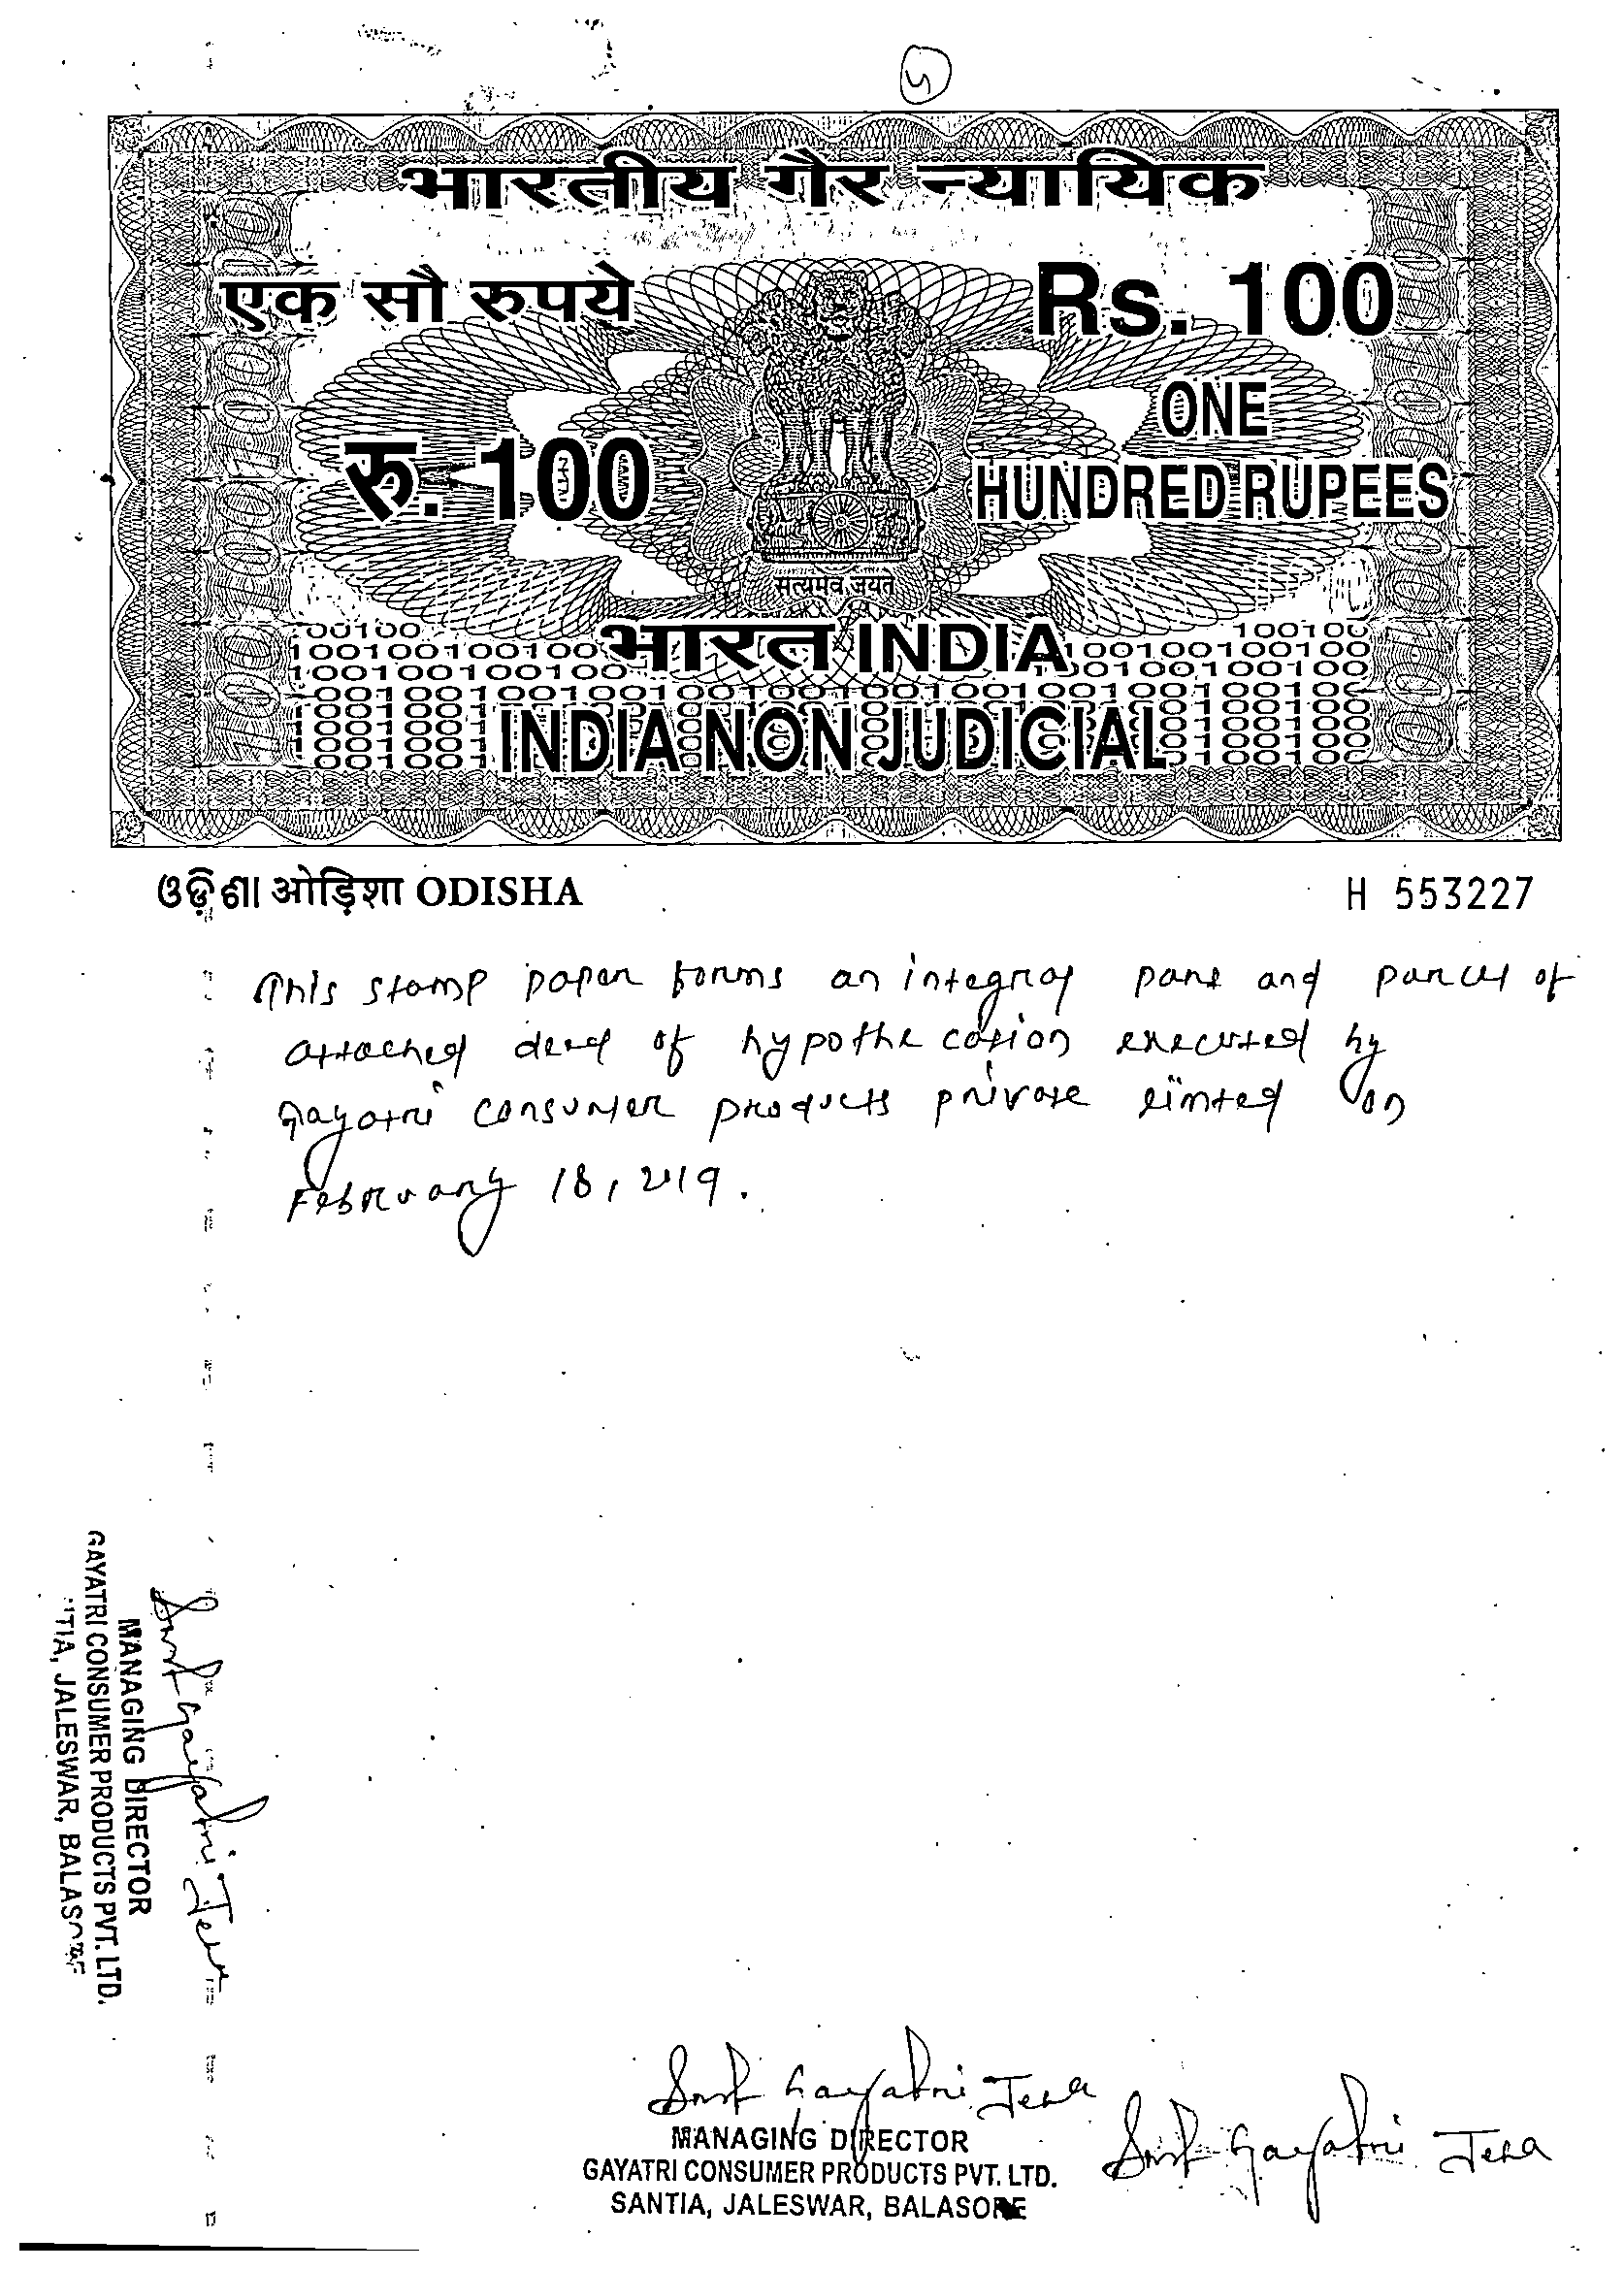 5
भारतीय गैर न्यायिक
एक सौ रुपये
Rs. 100
रु. 100
ONE
HUNDRED RUPEES
सत्यमेव जयते
भारत INDIA
INDIA NON JUDICIAL
ଓଡ଼ିଶା ओड़िशा ODISHA
H 553227
This stamp paper forms an integral part and parcel of
attached deed of hypothecation executed by
Gayatri consumer products private limited on
February 18, 2019.
Smt Gayatri Jena
MANAGING DIRECTOR
GAYATRI CONSUMER PRODUCTS PVT. LTD.
JALESWAR, BALASORE
Smt Gayatri Jena
MANAGING DIRECTOR
GAYATRI CONSUMER PRODUCTS PVT. LTD.
SANTIA, JALESWAR, BALASORE
Smt Gayatri Jena